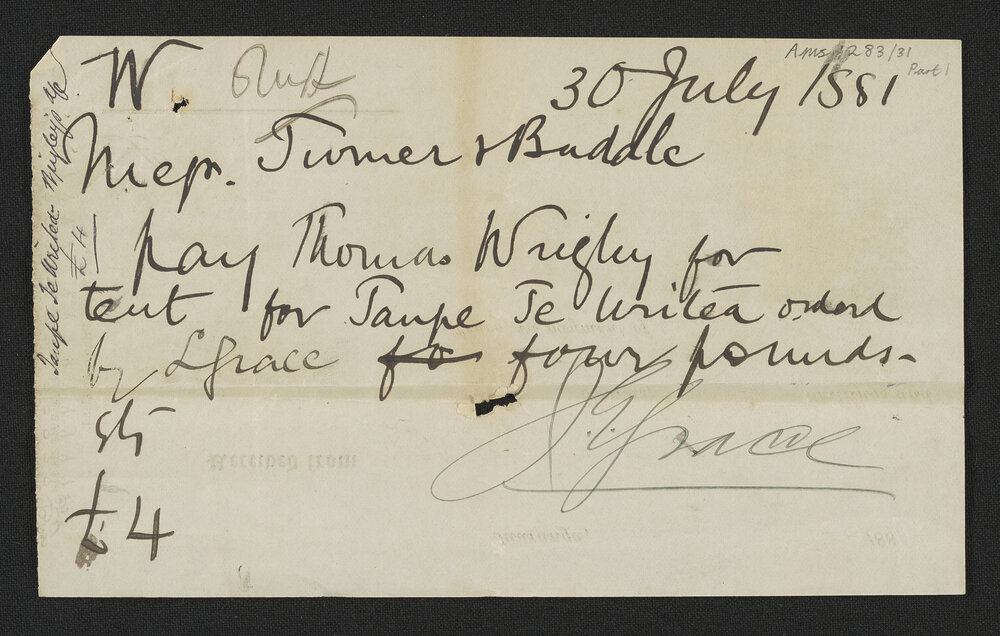 Ams 283/31
Part 1
W.
30 July 1881
Messrs. Turner & Buddle
Pay Thomas Wrigley for
tent for Taupe Te Writea ordered
by L Grace fo four pounds -
£4
L. Grace
Taupe Te Writea
£4
Received from
Tauranga,
188